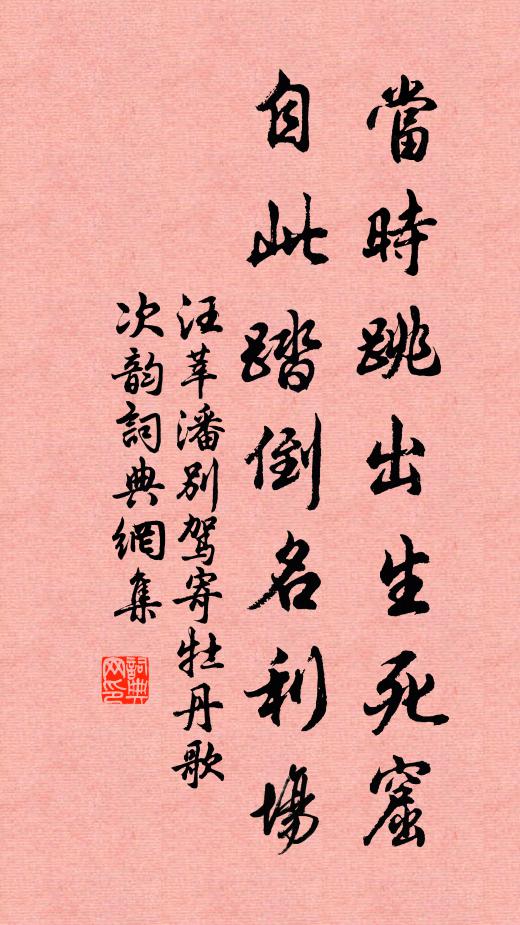 當時跳出生死窟
自此踏倒名利場
汪莘潘別駕寄牡丹歌
次韵詞典網集
詞典网印